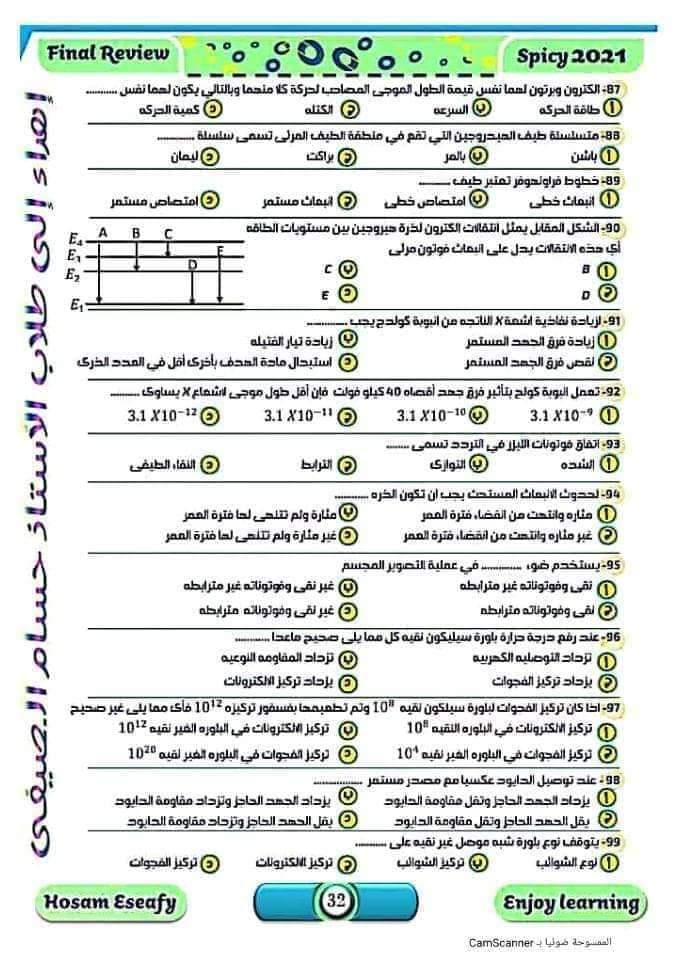 Final Review
Spicy 2021
إهداء إلى طلاب الأستاذ حسام الصيفى
87- الكترون وبرتون لهما نفس قيمة الطول الموجى المصاحب لحركة كلا منهما وبالتالي يكون لهما نفس ..........
أ طاقة الحركه ب السرعه ج الكتله د كمية الحركه
88- متسلسلة طيف الهيدروجين التي تقع في منطقة الطيف المرئي تسمى سلسلة ............
أ باشن ب بالمر ج براكت د ليمان
89- خطوط فراونهوفر تعتبر طيف ..........
أ انبعاث خطى ب امتصاص خطى ج انبعاث مستمر د امتصاص مستمر
90- الشكل المقابل يمثل انتقالات الكترون لذرة هيروجين بين مستويات الطاقه
أي هذه الانتقالات يدل على انبعاث فوتون مرئى
أ B ب C
ج D د E
A B C
E₄
E₃ E
E₂ D
E₁
91- لزيادة نفاذية اشعة X الناتجه من انبوبة كولدج يجب ............
أ زيادة فرق الجهد المستمر ب زيادة تيار الفتيله
ج نقص فرق الجهد المستمر د استبدال مادة الهدف بأخرى أقل في العدد الذرى
92- تعمل انبوبة كولج بتأثير فرق جهد أقصاه 40 كيلو فولت فإن أقل طول موجى لاشعاع X يساوى ..........
أ 3.1 X10⁻⁹ ب 3.1 X10⁻¹⁰ ج 3.1 X10⁻¹¹ د 3.1 X10⁻¹²
93- اتفاق فوتونات الليزر في التردد تسمى ........
أ الشده ب التوازى ج الترابط د النقاء الطيفى
94- لحدوث الانبعاث المستحث يجب ان تكون الذره ............
أ مثاره وانتهت من انقضاء فترة العمر ب مثارة ولم تنتهى لها فترة العمر
ج غير مثاره وانتهت من انقضاء فترة العمر د غير مثارة ولم تنتهى لها فترة العمر
95- يستخدم ضوء ............. في عملية التصوير المجسم
أ نقى وفوتوناته غير مترابطه ب غير نقى وفوتوناته غير مترابطه
ج نقى وفوتوناته مترابطه د غير نقى وفوتوناته مترابطه
96- عند رفع درجة حرارة بلورة سيليكون نقيه كل مما يلى صحيح ماعدا ............
أ تزداد التوصليه الكهربيه ب تزداد المقاومه النوعيه
ج يزداد تركيز الفجوات د يزداد تركيز الالكترونات
97- اذا كان تركيز الفجوات لبلورة سيلكون نقيه 10⁸ وتم تطعيمها بفسفور تركيزه 10¹² فأى مما يلى غير صحيح
أ تركيز الالكترونات في البلوره النقيه 10⁸ ب تركيز الالكترونات في البلوره الغير نقيه 10¹²
ج تركيز الفجوات في البلوره الغير نقيه 10⁴ د تركيز الفجوات في البلوره الغير نقيه 10²⁰
98- عند توصيل الدايود عكسيا مع مصدر مستمر .................
أ يزداد الجهد الحاجز وتقل مقاومة الدايود ب يزداد الجهد الحاجز وتزداد مقاومة الدايود
ج يقل الجهد الحاجز وتقل مقاومة الدايود د يقل الجهد الحاجز وتزداد مقاومة الدايود
99- يتوقف نوع بلورة شبه موصل غير نقيه على ............
أ نوع الشوائب ب تركيز الشوائب ج تركيز الالكترونات د تركيز الفجوات
Hosam Eseafy
32
Enjoy learning
الممسوحة ضوئيا بـ CamScanner